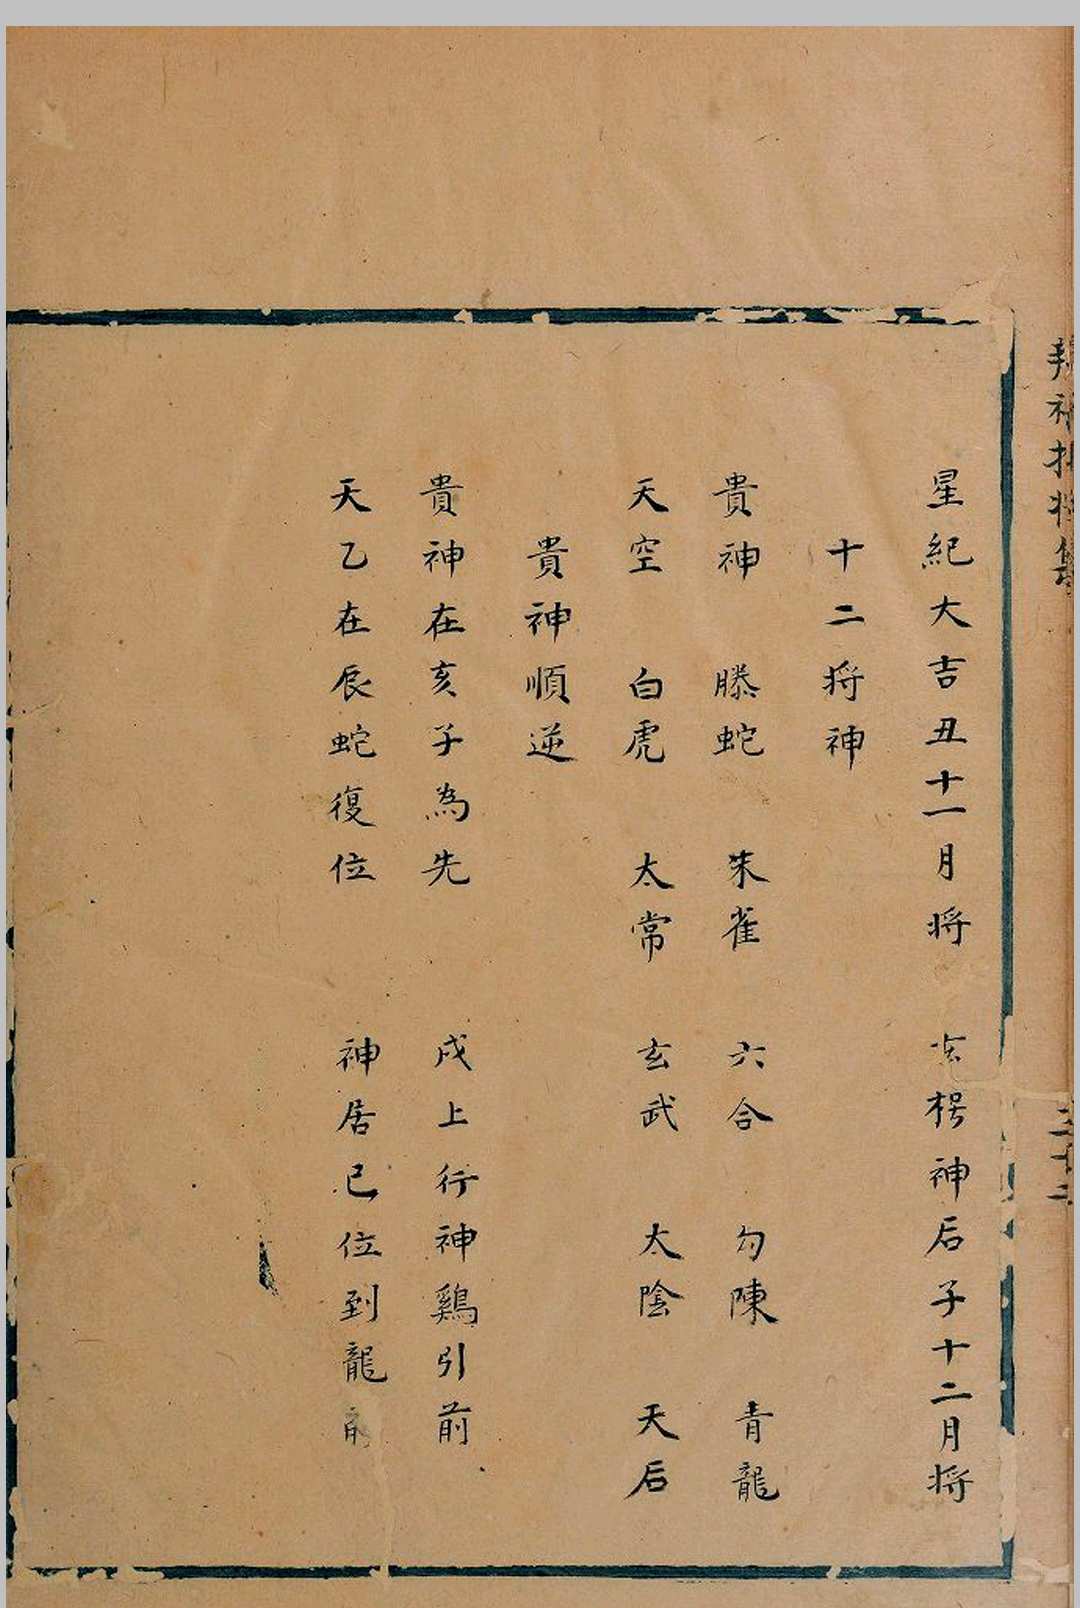 星紀大吉丑十一月將 玄枵神后子十二月將
十二將神
貴神 螣蛇 朱雀 六合 勾陳 青龍
天空 白虎 太常 玄武 太陰 天后
貴神順逆
貴神在亥子為先 戌上行神鷄引前
天乙在辰蛇復位 神居巳位到龍前